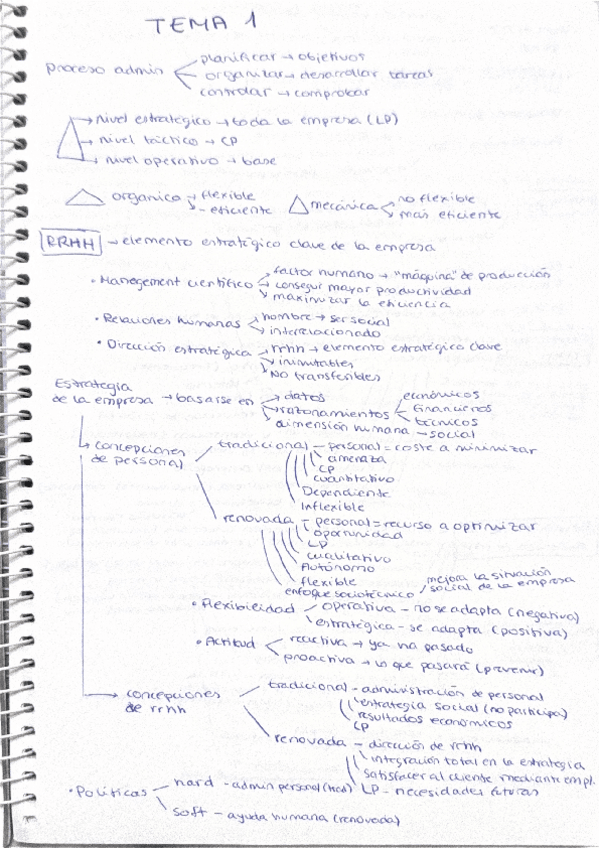 TEMA 1
planificar → objetivos
proceso admin organizar → desarrollar tareas
controlar → comprobar
→ nivel estratégico → toda la empresa (LP)
→ nivel táctico → CP
→ nivel operativo → base
orgánica → flexible mecánica no flexible
- eficiente más eficiente
RRHH → elemento estratégico clave de la empresa
factor humano → "máquina" de producción
• Management científico conseguir mayor productividad
maximizar la eficiencia
• Relaciones humanas hombre → ser social
interrelacionado
• Dirección estratégica → rrhh → elemento estratégico clave
inimitables
No transferibles
Estrategia económicos
de la empresa → basarse en → datos financieros
→ razonamientos técnicos
dimensión humana - social
→ concepciones tradicional - personal = coste a minimizar
de personal amenaza
CP
cuantitativo
Dependiente
Inflexible
renovada - personal = recurso a optimizar
oportunidad
LP
cualitativo
Autónomo
flexible mejora la situación
enfoque sociotécnico social de la empresa
• Flexibilidad operativa - no se adapta (negativa)
estratégica - se adapta (positiva)
• Actitud reactiva → ya ha pasado
proactiva → lo que pasará (prevenir)
→ concepciones tradicional - administración de personal
de rrhh estrategia social (no participa)
resultados económicos
CP
renovada - dirección de rrhh
integración total en la estrategia
satisfacer al cliente mediante empl.
• Políticas hard - admin personal (trad) LP - necesidades futuras
soft - ayuda humana (renovada)